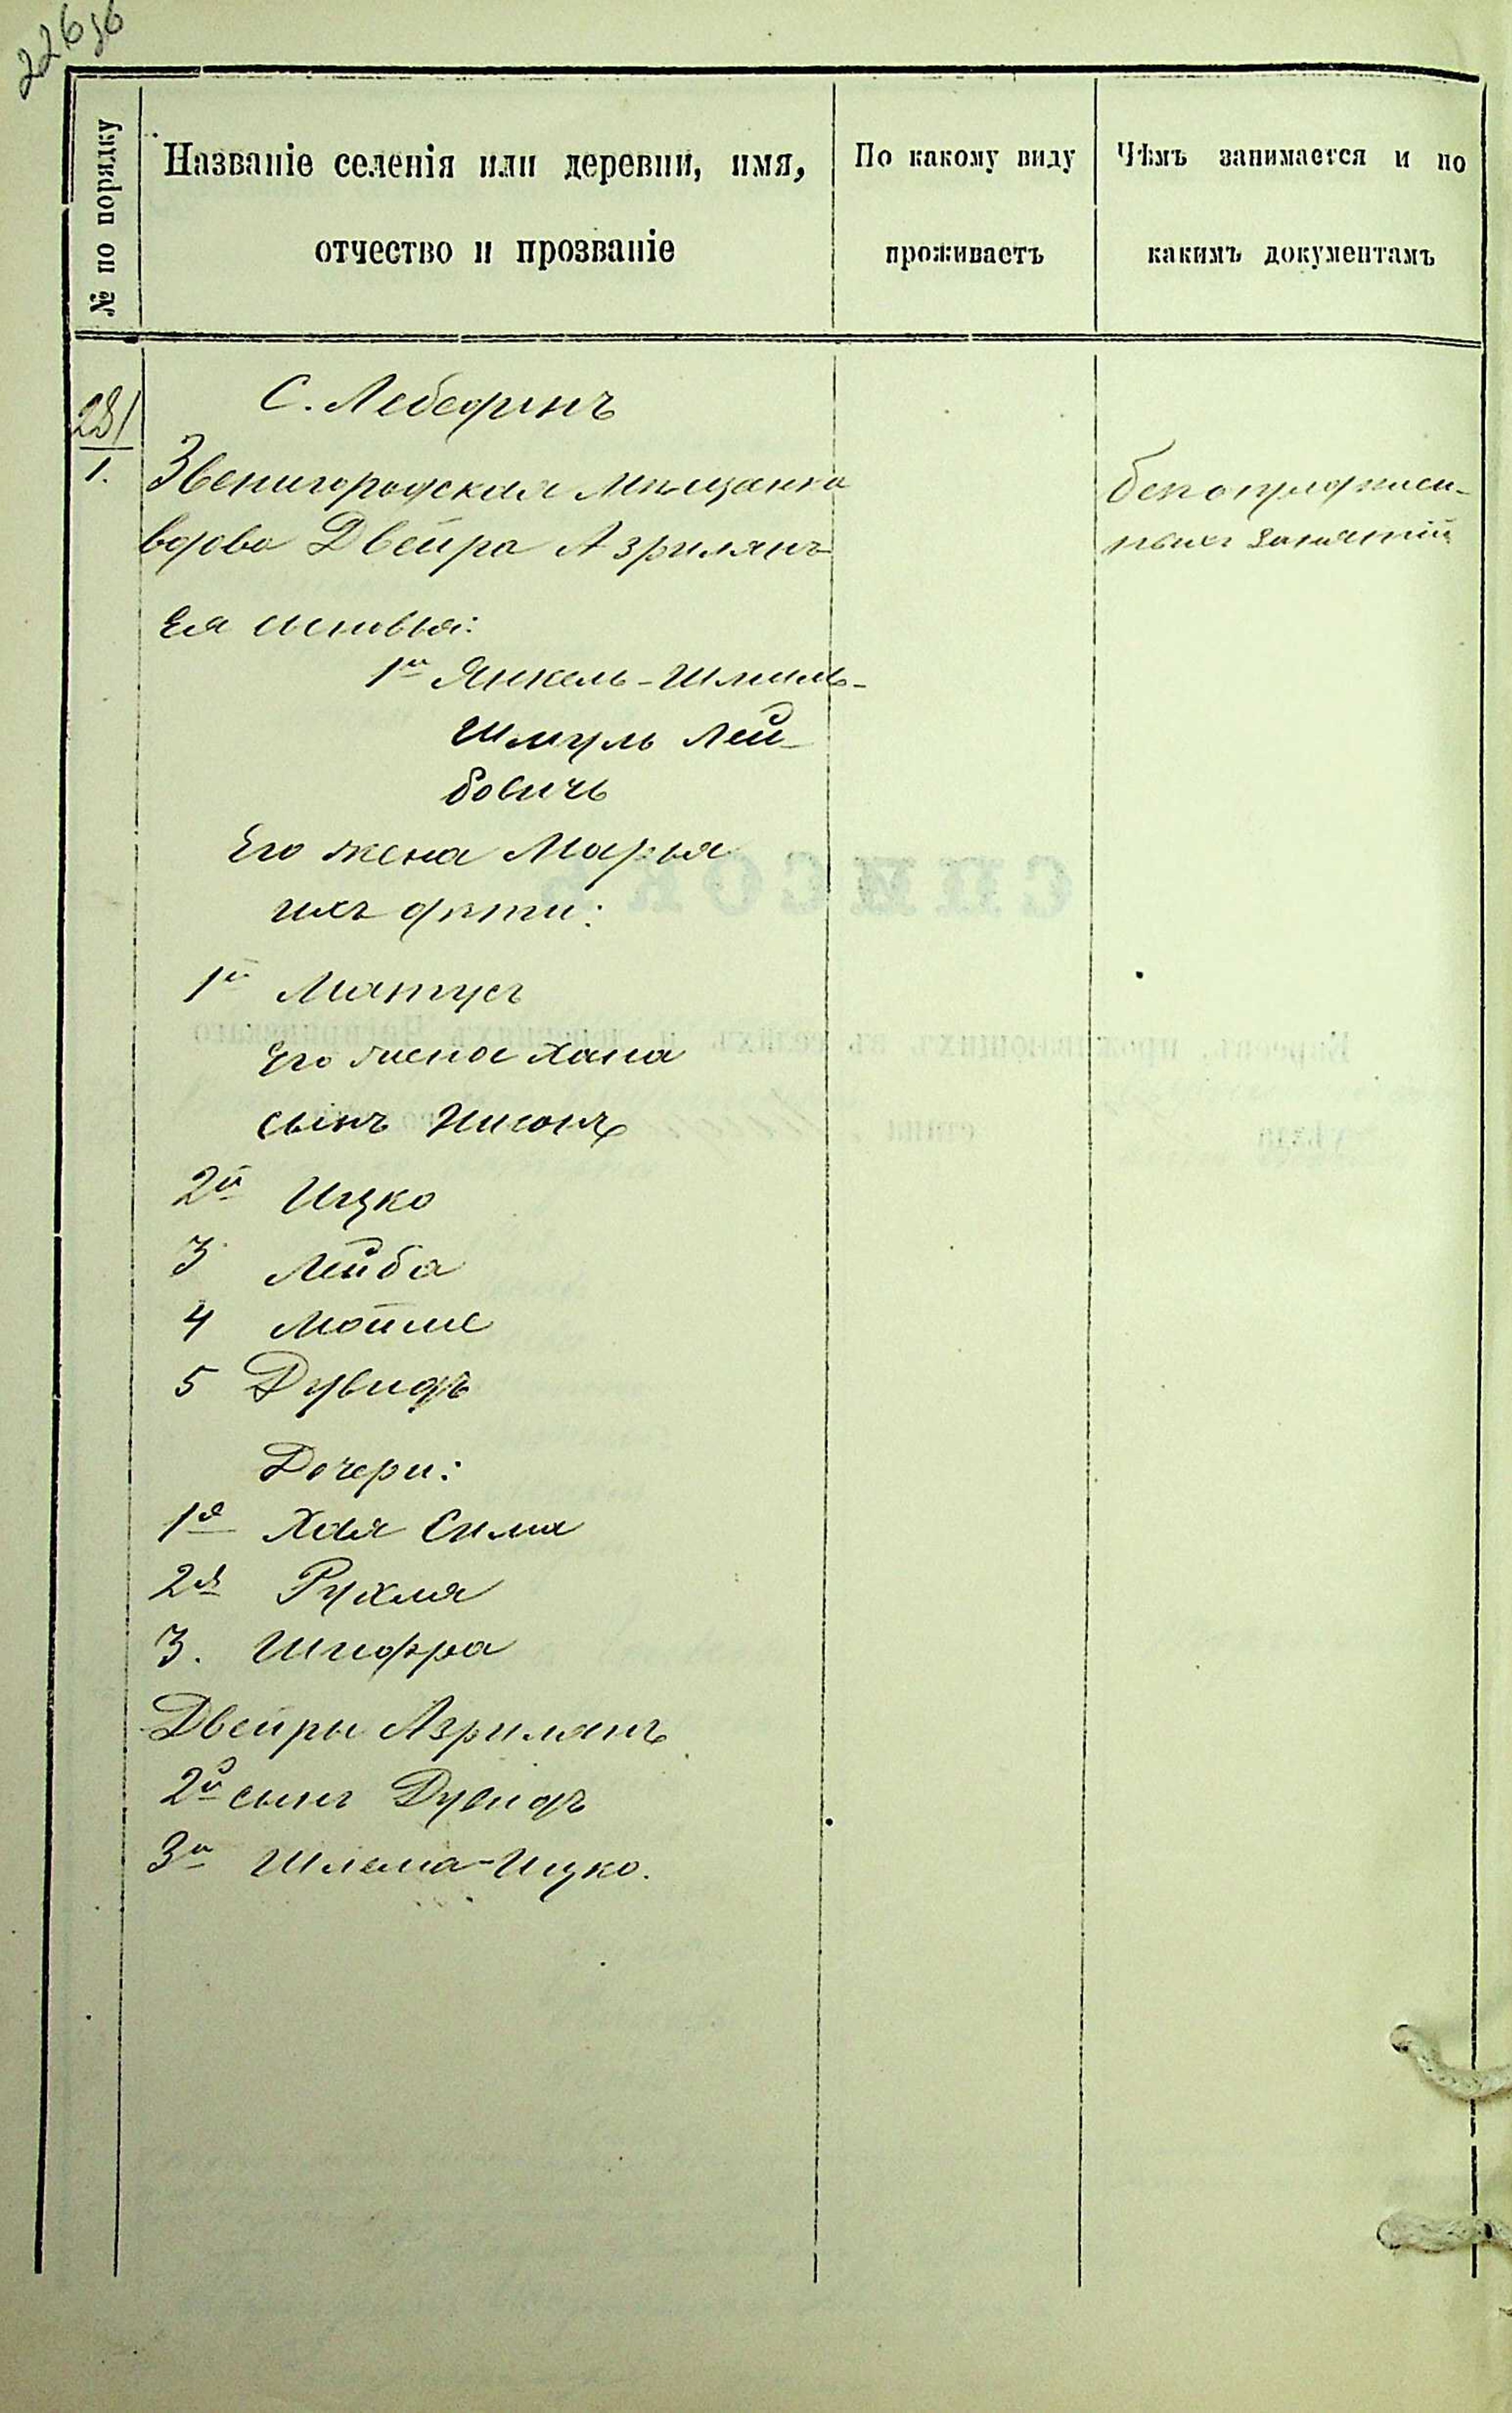 226 об
№ по порядку
Названіе селенія или деревни, имя,
отчество и прозваніе
По какому виду
проживаетъ
Чѣмъ занимается и по
какимъ документамъ
281
1.
С. Лебединъ
Звенигородская мѣщанка
вдова Двейра Азрилянъ
Ея сыновья:
1й Янкель-Шмиль-
Шмуль Лей-
бовичъ
Его жена Марья
ихъ дѣти:
1й Мантусъ
Его жена Хана
сынъ Нисонъ
2й Ицко
3 Лейба
4 Мотле
5 Дувидъ
Дочери:
1я Хая Сима
2я Рухля
3. Шифра
Двейры Азрилянъ
2й сынъ Дувидъ
3й Шлема-Ицко.
безопредѣлен-
ныхъ занятій
СПИСОКЪ
Евреевъ, проживающихъ въ селахъ и деревняхъ Чигиринскаго
уѣзда
стана